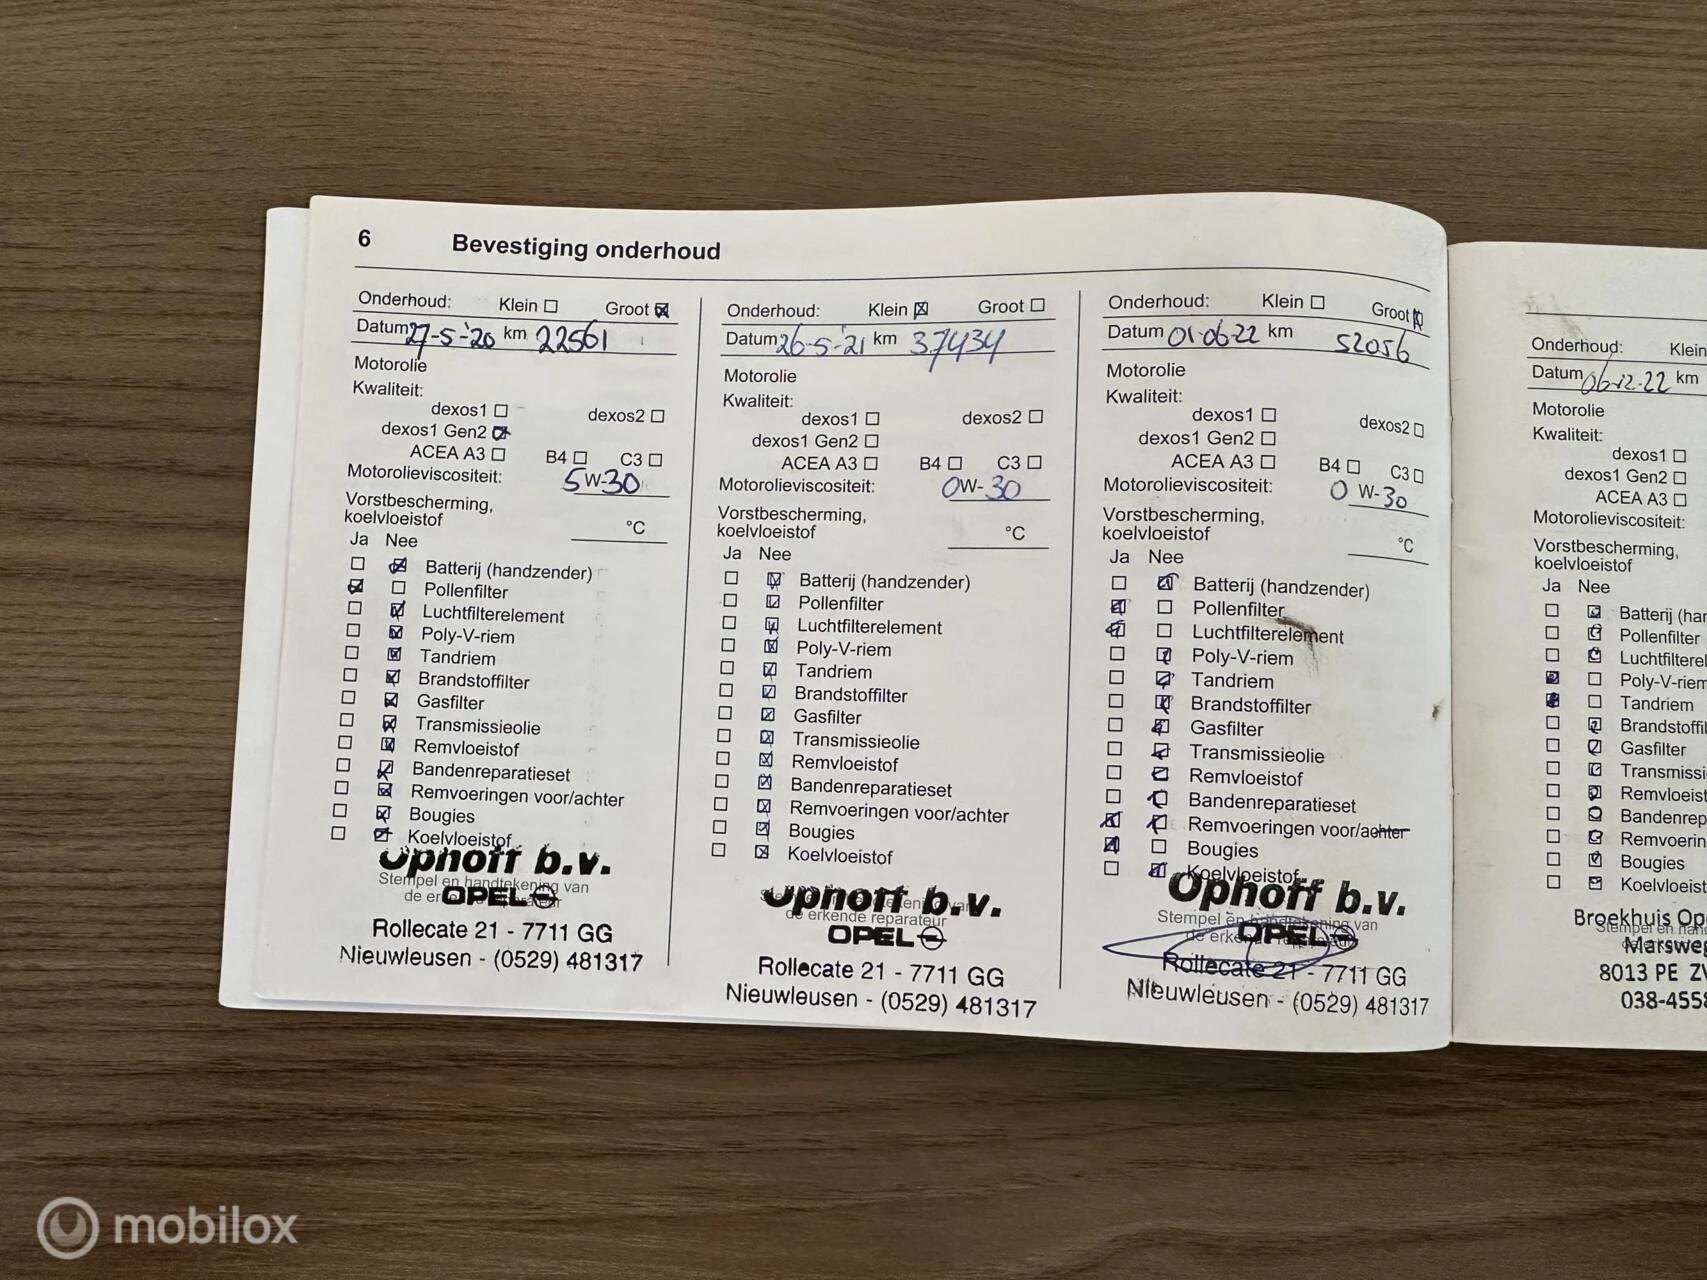 6 Bevestiging onderhoud
Onderhoud: Klein Groot
Datum 27-5-'20 km 22561
Motorolie
Kwaliteit:
dexos1 dexos2
dexos1 Gen2
ACEA A3 B4 C3
Motorolieviscositeit: 5 W-30
Vorstbescherming,
koelvloeistof °C
Ja Nee
Batterij (handzender)
Pollenfilter
Luchtfilterelement
Poly-V-riem
Tandriem
Brandstoffilter
Gasfilter
Transmissieolie
Remvloeistof
Bandenreparatieset
Remvoeringen voor/achter
Bougies
Koelvloeistof
Ophoff b.v.
Stempel en handtekening van
de erkende reparateur
OPEL
Rollecate 21 - 7711 GG
Nieuwleusen - (0529) 481317
Onderhoud: Klein Groot
Datum 26-5-'21 km 37434
Motorolie
Kwaliteit:
dexos1 dexos2
dexos1 Gen2
ACEA A3 B4 C3
Motorolieviscositeit: 0W-30
Vorstbescherming,
koelvloeistof °C
Ja Nee
Batterij (handzender)
Pollenfilter
Luchtfilterelement
Poly-V-riem
Tandriem
Brandstoffilter
Gasfilter
Transmissieolie
Remvloeistof
Bandenreparatieset
Remvoeringen voor/achter
Bougies
Koelvloeistof
Ophoff b.v.
de erkende reparateur
OPEL
Rollecate 21 - 7711 GG
Nieuwleusen - (0529) 481317
Onderhoud: Klein Groot
Datum 01-06-22 km 52056
Motorolie
Kwaliteit:
dexos1 dexos2
dexos1 Gen2
ACEA A3 B4 C3
Motorolieviscositeit: 0 W-30
Vorstbescherming,
koelvloeistof °C
Ja Nee
Batterij (handzender)
Pollenfilter
Luchtfilterelement
Poly-V-riem
Tandriem
Brandstoffilter
Gasfilter
Transmissieolie
Remvloeistof
Bandenreparatieset
Remvoeringen voor/achter
Bougies
Koelvloeistof
Ophoff b.v.
Stempel en handtekening van
de erkende reparateur
OPEL
Rollecate 21 - 7711 GG
Nieuwleusen - (0529) 481317
Onderhoud: Klein
Datum 06-12-22 km
Motorolie
Kwaliteit:
dexos1
dexos1 Gen2
ACEA A3
Motorolieviscositeit:
Vorstbescherming,
koelvloeistof
Ja Nee
Batterij (har
Pollenfilter
Luchtfilterel
Poly-V-riem
Tandriem
Brandstoffil
Gasfilter
Transmissi
Remvloeist
Bandenrep
Remvoerin
Bougies
Koelvloeist
Broekhuis Op
Stempel en han
Marsweg
8013 PE ZV
038-4558
mobilox